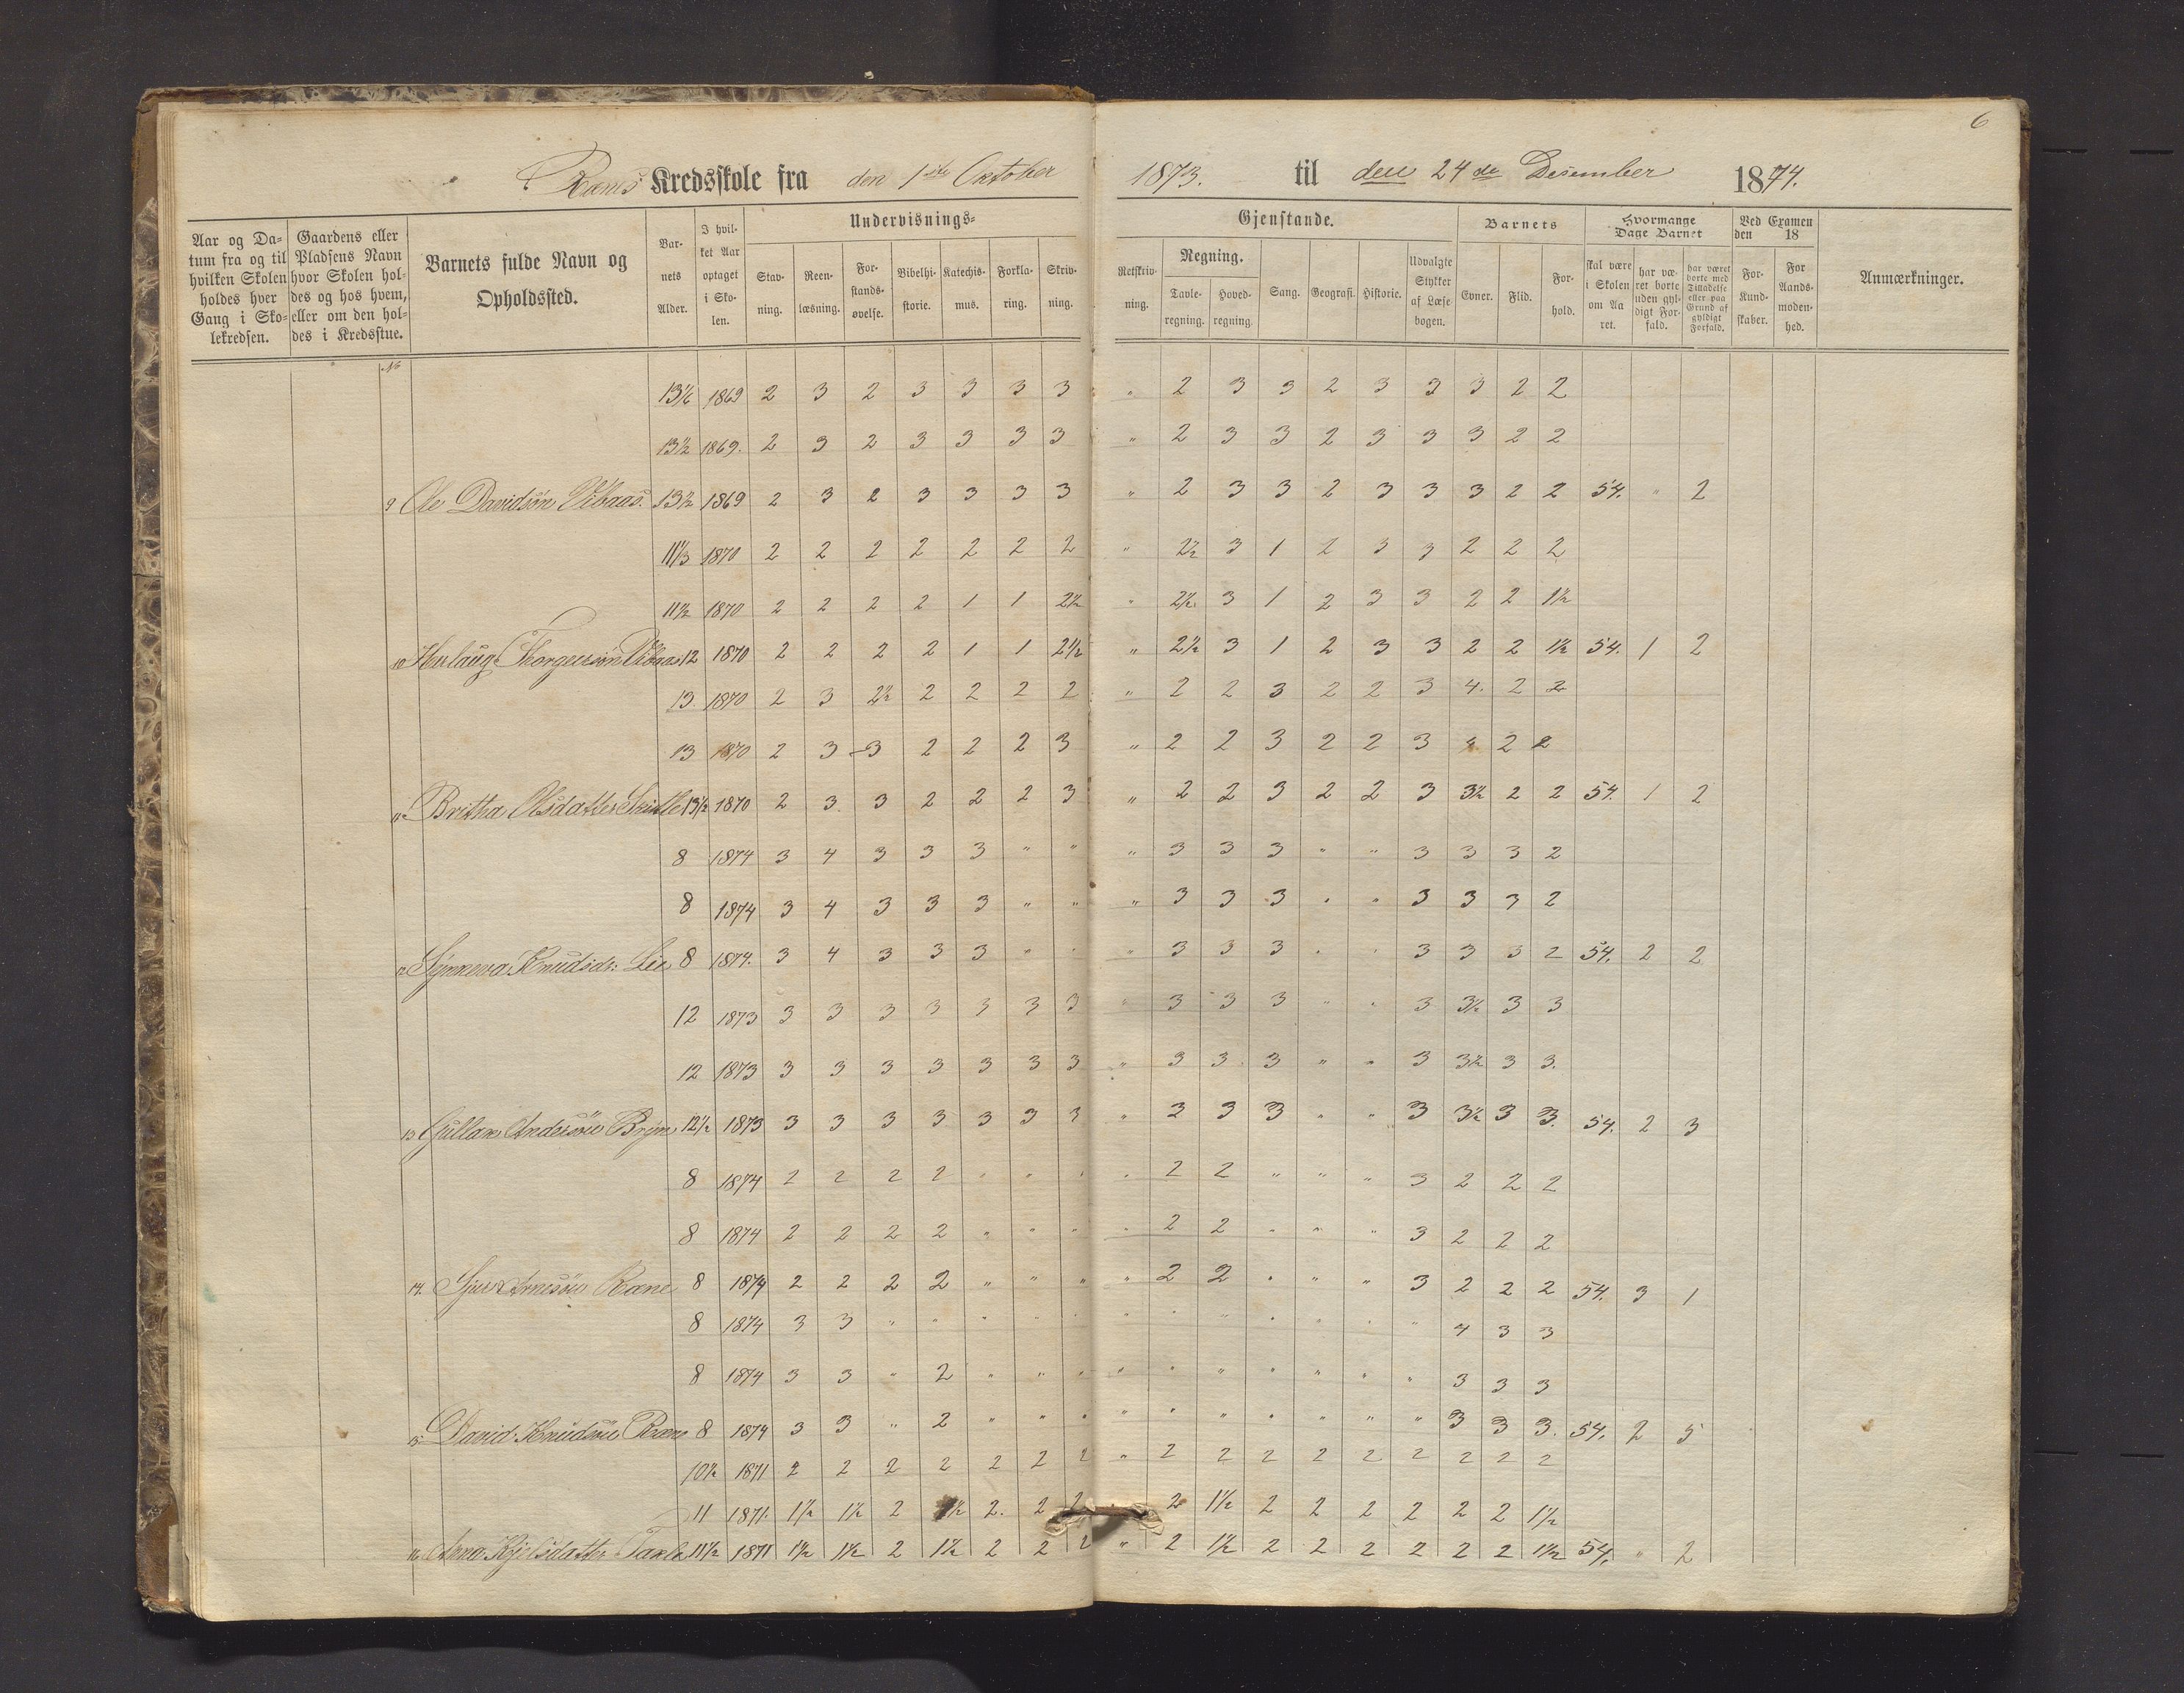 6
Rams Kredsskole fra den 1ste Oktober 1873. til den 24de Desember 1874.
Aar og Datum fra og til hvilken Skolen holdes hver Gang i Skolekredsen. | Gaardens eller Pladsens Navn hvor Skolen holdes og hos hvem, eller om den holdes i Kredsstue. | Barnets fulde Navn og Opholdssted. | Barnets Alder. | I hvilket Aar optaget i Skolen. | Undervisnings- Gjenstande. | Stavning. | Reenlæsning. | Forstandsøvelse. | Bibelhistorie. | Katechismus. | Forklaring. | Skrivning. | Retskrivning. | Regning. | Tavleregning. | Hovedregning. | Sang. | Geografi. | Historie. | Udvalgte Stykker af Læsebogen. | Barnets | Evner. | Flid. | Forhold. | Hvormange Dage Barnet | skal være i Skolen om Aaret. | har været borte uden gyldigt Forfald. | har været borte med Tilladelse eller paa Grund af gyldigt Forfald. | Ved Examen den 18 | For Kundskaber. | For Aandsmodenhed. | Anmærkninger.
No
13 1/6 1869 2 3 2 3 3 3 3 " 2 3 3 2 3 3 3 2 2
13 1/2 1869. 2 3 2 3 3 3 3 " 2 3 3 2 3 3 3 2 2
9 Ole Davidsøn Vibaas. 13 1/2 1869 2 3 2 3 3 3 3 " 2 3 3 2 3 3 3 2 2 54. " 2
11 1/3 1870 2 2 2 2 2 2 2 " 2 1/2 3 1 2 3 3 2 2 2
11 1/2 1870 2 2 2 2 1 1 2 1/2 " 2 1/2 3 1 2 3 3 2 2 1 1/2
10 Herlaug Thorgeersøn Vibaas 12 1870 2 2 2 2 1 1 2 1/2 " 2 1/2 3 1 2 3 3 2 2 1 1/2 54. 1 2
13. 1870 2 3 2 1/2 2 2 2 2 " 2 2 3 2 2 3 4. 2 2
13 1870 2 3 3 2 2 2 3 " 2 2 3 2 2 3 4 2 2
11 Britha Olsdatter 13 1/2 1870 2 3 3 2 2 2 3 " 2 2 3 2 2 3 3 1/2 2 2 54. 1 2
8 1874 3 4 3 3 3 " " " 3 3 3 " " 3 3 3 2
8 1874 3 4 3 3 3 " " " 3 3 3 " " 3 3 3 2
12 Synneva Knudsdr. Lie 8 1874. 3 4 3 3 3 " " " 3 3 3 " " 3 3 3 2 54. 2 2
12 1873 3 3 3 3 3 3 3 " 3 3 3 " " 3 3 1/2 3 3
12 1873 3 3 3 3 3 3 3 " 3 3 3 " " 3 3 1/2 3 3.
13 Gullak Andersøn Bryn 12 1/2 1873 3 3 3 3 3 3 3 " 3 3 3 " " 3 3 1/2 3 3. 54. 2 3
8 1874 2 2 2 2 " " " " 2 2 " " " 3 2 2 2
8 1874 2 2 2 2 " " " " 2 2 " " " 3 2 2 2
14. Sjur Arnesøn Rane 8 1874 2 2 2 2 " " " " 2 2 " " " 3 2 2 2 54. 3 1
8 1874 3 3 " " " " " " " " " " " " 4 3 3
8 1874 3 3 " 2 " " " " " " " " " " 3 3 3
15 David Knudsøn Rane 8 1874 3 3 " 2 " " " " " " " " " " 3 3 3. 54. 2 5
10 1/2 1871 2 2 2 2 2 2 2 " 2 2 2 2 2 2 2 2 2
11 1871. 1 1/2 1 1/2 2 1 1/2 2. 2 2 2 1 1/2 2 2 2 2 2 2 1 1/2
16 Anna Kjelsdatter 11 1/2 1871 1 1/2 1 1/2 2 1 1/2 2 2 2 " 2 1 1/2 2 2 2 2 2 2 1 1/2 54. " 2